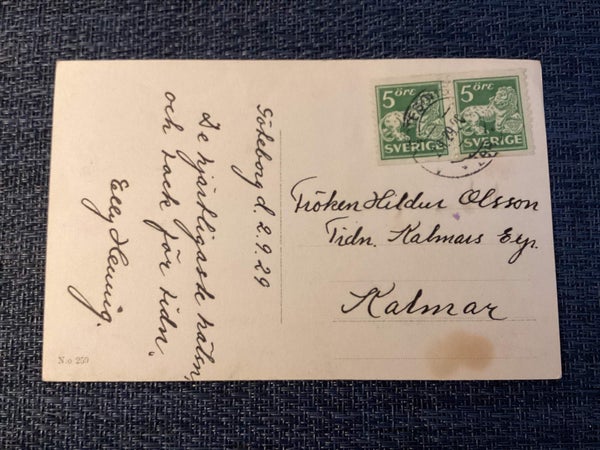 Göteborg d. 2.9.29
De hjärtligaste hälsn.
och tack för tidn.
Elly Hennig.
5 ÖRE
SVERIGE
5 ÖRE
SVERIGE
Fröken Hildur Olsson
Tidn. Kalmars Exp.
Kalmar
N:o 259